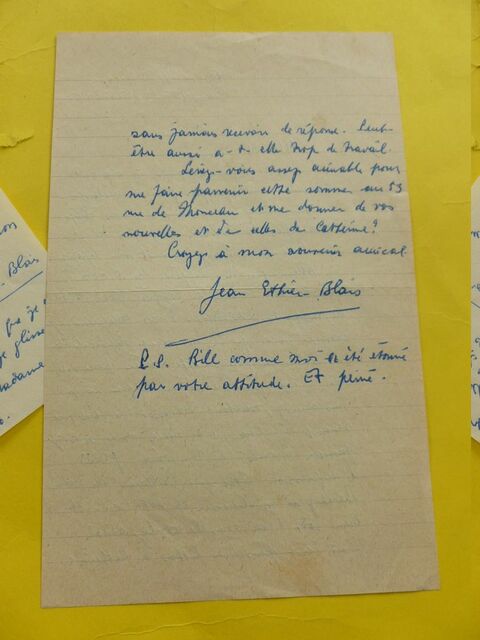 sans jamais recevoir de réponse. Peut-
être aussi a-t-elle trop de travail.
Seriez-vous assez aimable pour
me faire parvenir cette somme au 53
rue de Monceau et me donner de vos
nouvelles et de celles de Catherine?
Croyez à mon souvenir amical
Jean Ethier-Blais
P.S. Bill comme moi a été étonné
par votre attitude. Et peiné.
Blais
que je
je glisse
adame